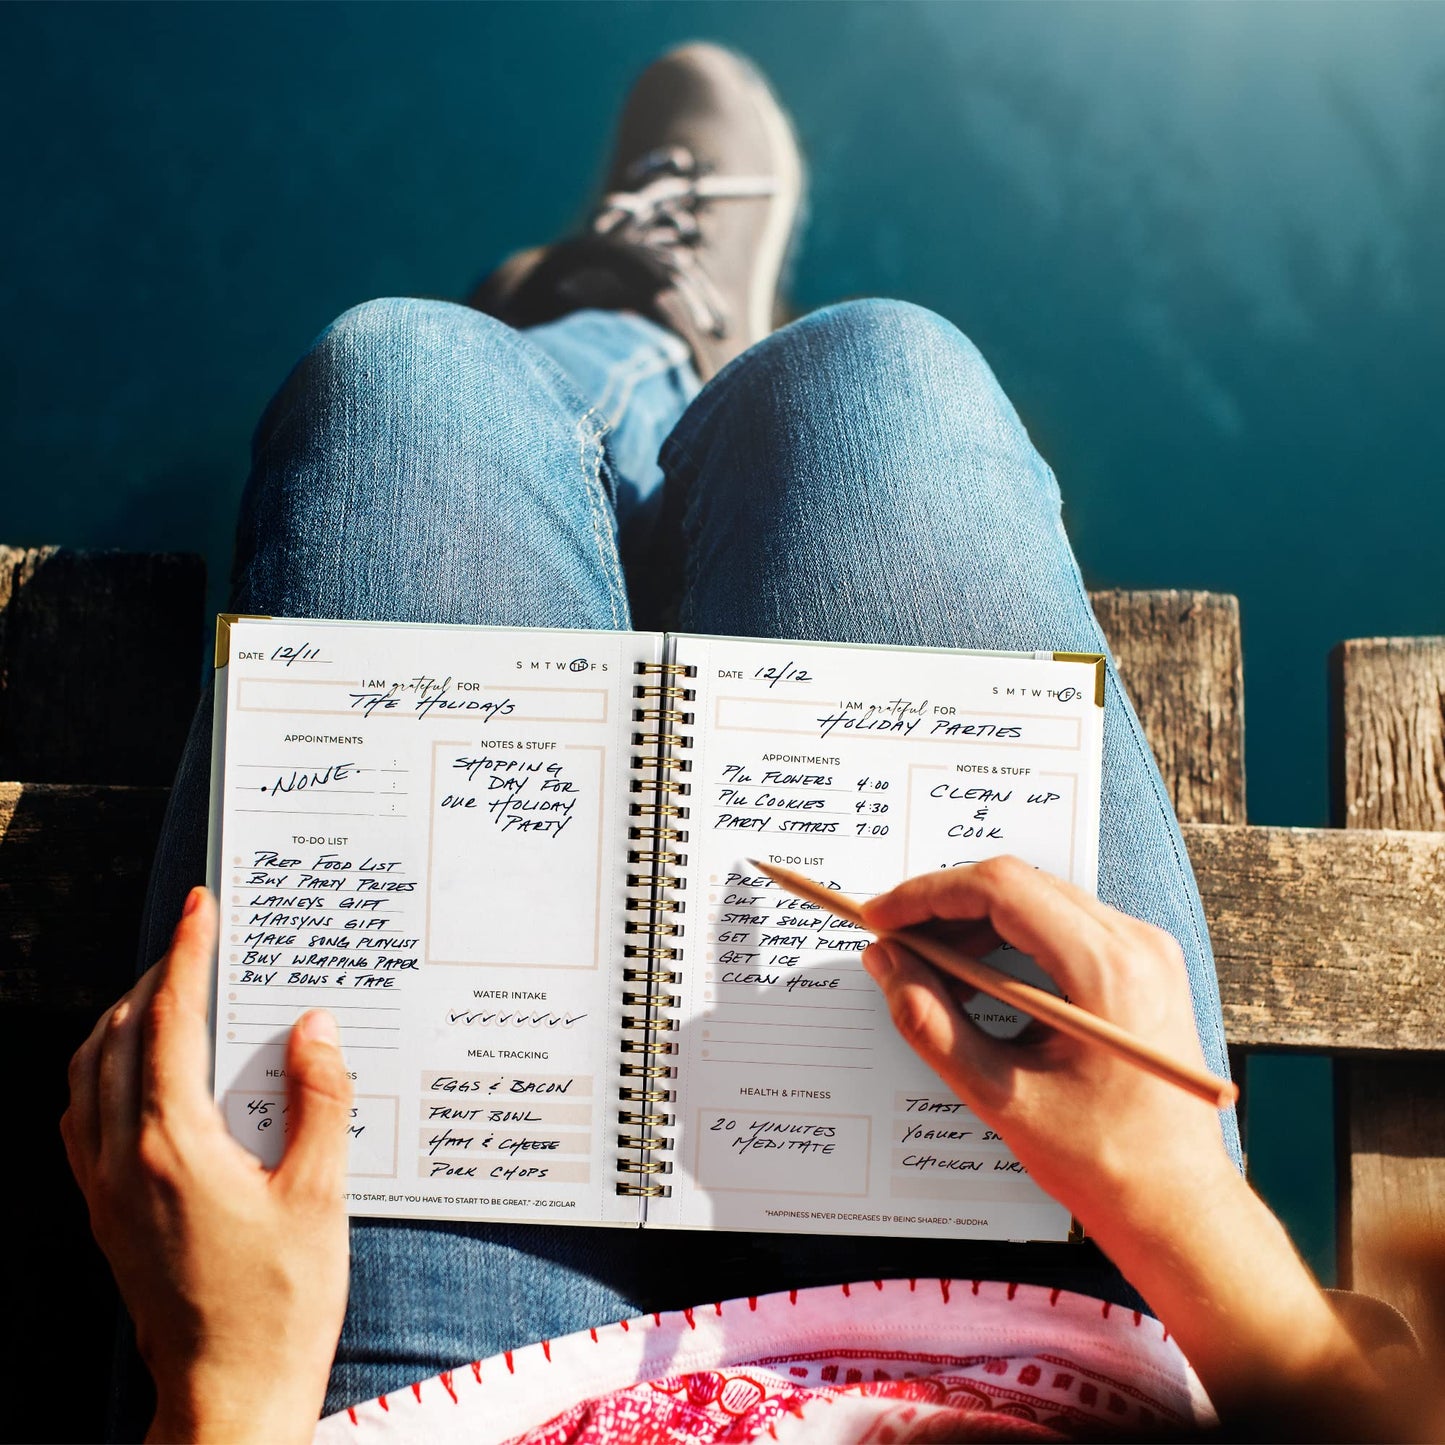 DATE 12/11
S M T W TH F S
I AM grateful FOR
THE HOLIDAYS
APPOINTMENTS
:
. NONE. :
:
TO-DO LIST
PREP FOOD LIST
BUY PARTY PRIZES
LAINEYS GIFT
MAISYNS GIFT
MAKE SONG PLAYLIST
BUY WRAPPING PAPER
BUY BOWS & TAPE
45
@
NOTES & STUFF
SHOPPING
DAY FOR
OUR HOLIDAY
PARTY
WATER INTAKE
MEAL TRACKING
EGGS & BACON
FRUIT BOWL
HAM & CHEESE
PORK CHOPS
AT TO START, BUT YOU HAVE TO START TO BE GREAT." -ZIG ZIGLAR
DATE 12/12
S M T W TH F S
I AM grateful FOR
HOLIDAY PARTIES
APPOINTMENTS
P/U FLOWERS 4:00
P/U COOKIES 4:30
PARTY STARTS 7:00
TO-DO LIST
PREP
CUT
START SOUP/
GET PARTY
GET ICE
CLEAN HOUSE
HEALTH & FITNESS
20 MINUTES
MEDITATE
NOTES & STUFF
CLEAN UP
&
COOK
INTAKE
TOAST
YOGURT
CHICKEN
"HAPPINESS NEVER DECREASES BY BEING SHARED." -BUDDHA